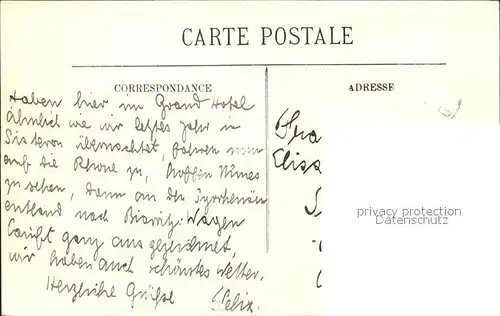 CARTE POSTALE
CORRESPONDANCE
ADRESSE
Haben hier im Grand Hotel
ähnlich wie wir letztes Jahr in
Sisteron übernachtet, fahren nun
auf die Rhone zu, hoffen Nîmes
zu sehen, dann an den Pyrrhenäen
entlang nach Biarritz. Wagen
läuft ganz ausgezeichnet,
wir haben auch schönstes Wetter.
Herzliche Grüße Felix.
privacy protection
Datenschutz